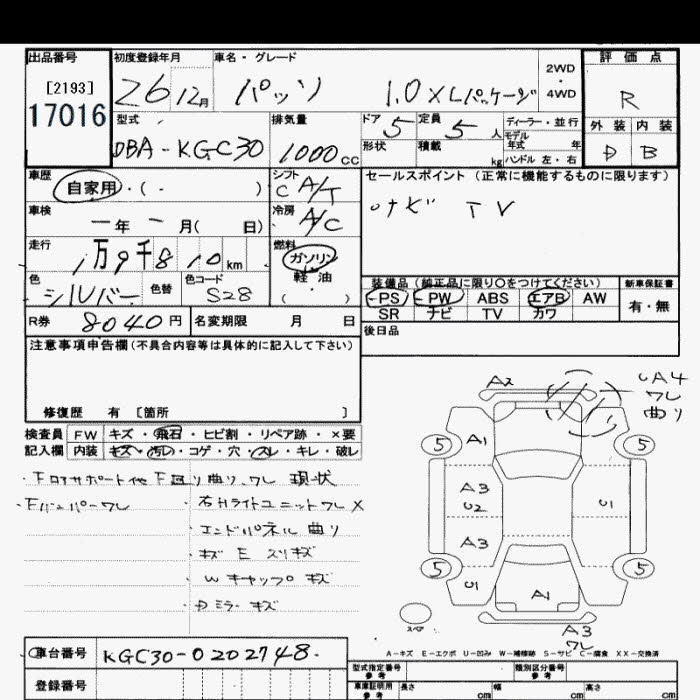 出品番号 初度登録年月 車名・グレード 2WD・4WD 評価点
[2193]
17016 26 12月 パッソ 1.0 XLパッケージ R
型式 排気量 ドア 5 定員 5 人 ディーラー・並行 外装 内装
DBA-KGC30 1000cc 形状 積載 kg モデル年式 年 D B
ハンドル 左・右
車歴 自家用・(・ ) シフト C A/T セールスポイント(正常に機能するものに限ります)
車検 ー年ー月( 日) 冷房 A/C ナビ TV
走行 1万9千810km 燃料 ガソリン
軽・油
( )
色 シルバー 色替 色コード S28
装備品(純正品に限り○をつけてください) 新車保証書
PS PW ABS エアB AW 有・無
SR ナビ TV カワ
R券 8040円 名変期限 月 日 後日品
注意事項申告欄(不具合内容等は具体的に記入して下さい)
修復歴 有 [箇所 ]
検査員 FW キズ・飛石・ヒビ割・リペア跡・×要
記入欄 内装 キズ・汚レ・コゲ・穴・スレ・キレ・破レ
・Fロアサポート他F廻り曲り、ワレ 現状
・Fバンパーワレ ・右Hライトユニットワレ X
・エンドパネル曲り
・キズ E スリキズ
・Wキャップキズ
・Dミラーキズ
A2 UA4
ワレ
曲り
5 A1 5
A3
U2 U1
A3
5 5
U1 A1
スペア A3
ワレ
A-キズ E-エクボ U-凹み W-補修跡 S-サビ C-腐食 XX-交換済
車台番号 KGC30-0202748
登録番号
型式指定番号 参考 類別区分番号 参考
車庫証明用 参考 長さ cm 幅 cm 高さ cm